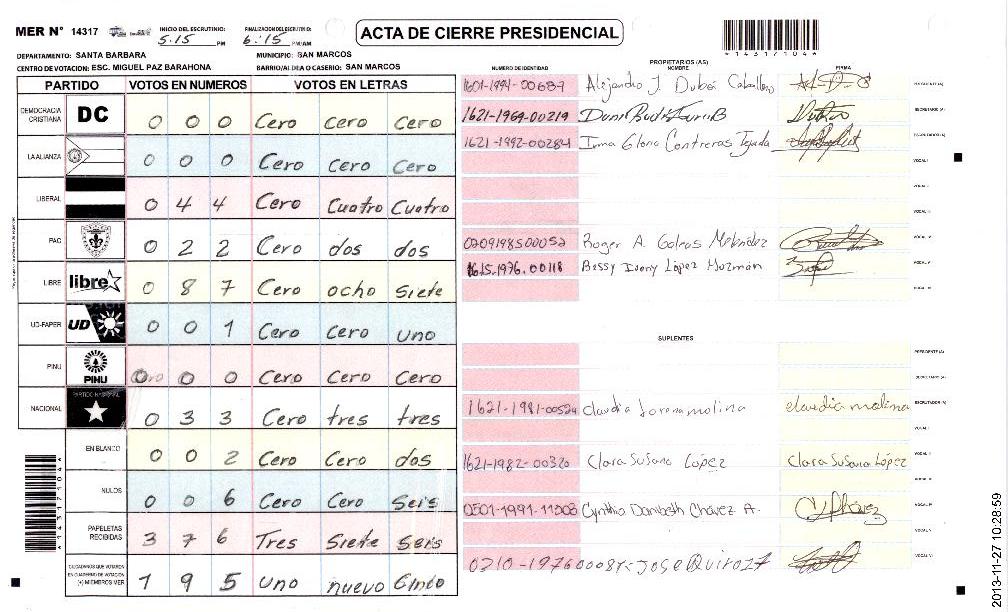 MER N° 14317 INICIO DEL ESCRUTINIO: 5:15 PM FINALIZACION DEL ESCRUTINIO: 6:15 PM/AM
ACTA DE CIERRE PRESIDENCIAL
*14317104*
DEPARTAMENTO: SANTA BARBARA MUNICIPIO: SAN MARCOS
CENTRO DE VOTACION: ESC. MIGUEL PAZ BARAHONA BARRIO/ALDEA O CASERIO: SAN MARCOS
PARTIDO VOTOS EN NUMEROS VOTOS EN LETRAS
DEMOCRACIA CRISTIANA DC 0 0 0 Cero Cero Cero
LA ALIANZA 0 0 0 Cero Cero Cero
LIBERAL 0 4 4 Cero Cuatro Cuatro
PAC 0 2 2 Cero dos dos
LIBRE libre 0 8 7 Cero ocho Siete
UD-FAPER UD 0 0 1 Cero Cero uno
PINU PINU 0 0 0 Cero Cero Cero
NACIONAL PARTIDO NACIONAL 0 3 3 Cero tres tres
EN BLANCO 0 0 2 Cero Cero dos
NULOS 0 0 6 Cero Cero Seis
PAPELETAS RECIBIDAS 3 7 6 Tres Siete Seis
CIUDADANOS QUE VOTARON EN CUADERNO DE VOTACION (+) MIEMBROS MER 1 9 5 uno nuevo Cinco
*14317104*
PROPIETARIOS (AS)
NUMERO DE IDENTIDAD NOMBRE FIRMA
1601-1991-00687 Alejandro J. Dubón Caballero PRESIDENTE (A)
1621-1969-00219 SECRETARIO (A)
1621-1992-00284 Irma Gloria Contreras Tejada ESCRUTADOR (A)
VOCAL I
VOCAL II
VOCAL III
0209198500052 Roger A. VOCAL IV
1615-1976-00118 Bessy Ivony López Guzmán VOCAL V
VOCAL VI
SUPLENTES
PRESIDENTE (A)
SECRETARIO (A)
1621-1981-00524 Claudia Lorena molina claudia molina ESCRUTADOR (A)
VOCAL I
1621-1982-00320 Clara Susana López Clara Susana López VOCAL II
VOCAL III
0501-1991-11308 Cynthia Chávez A. VOCAL IV
VOCAL V
0210-1976 Jose Quiroz VOCAL VI
2013-11-27 10:28:59